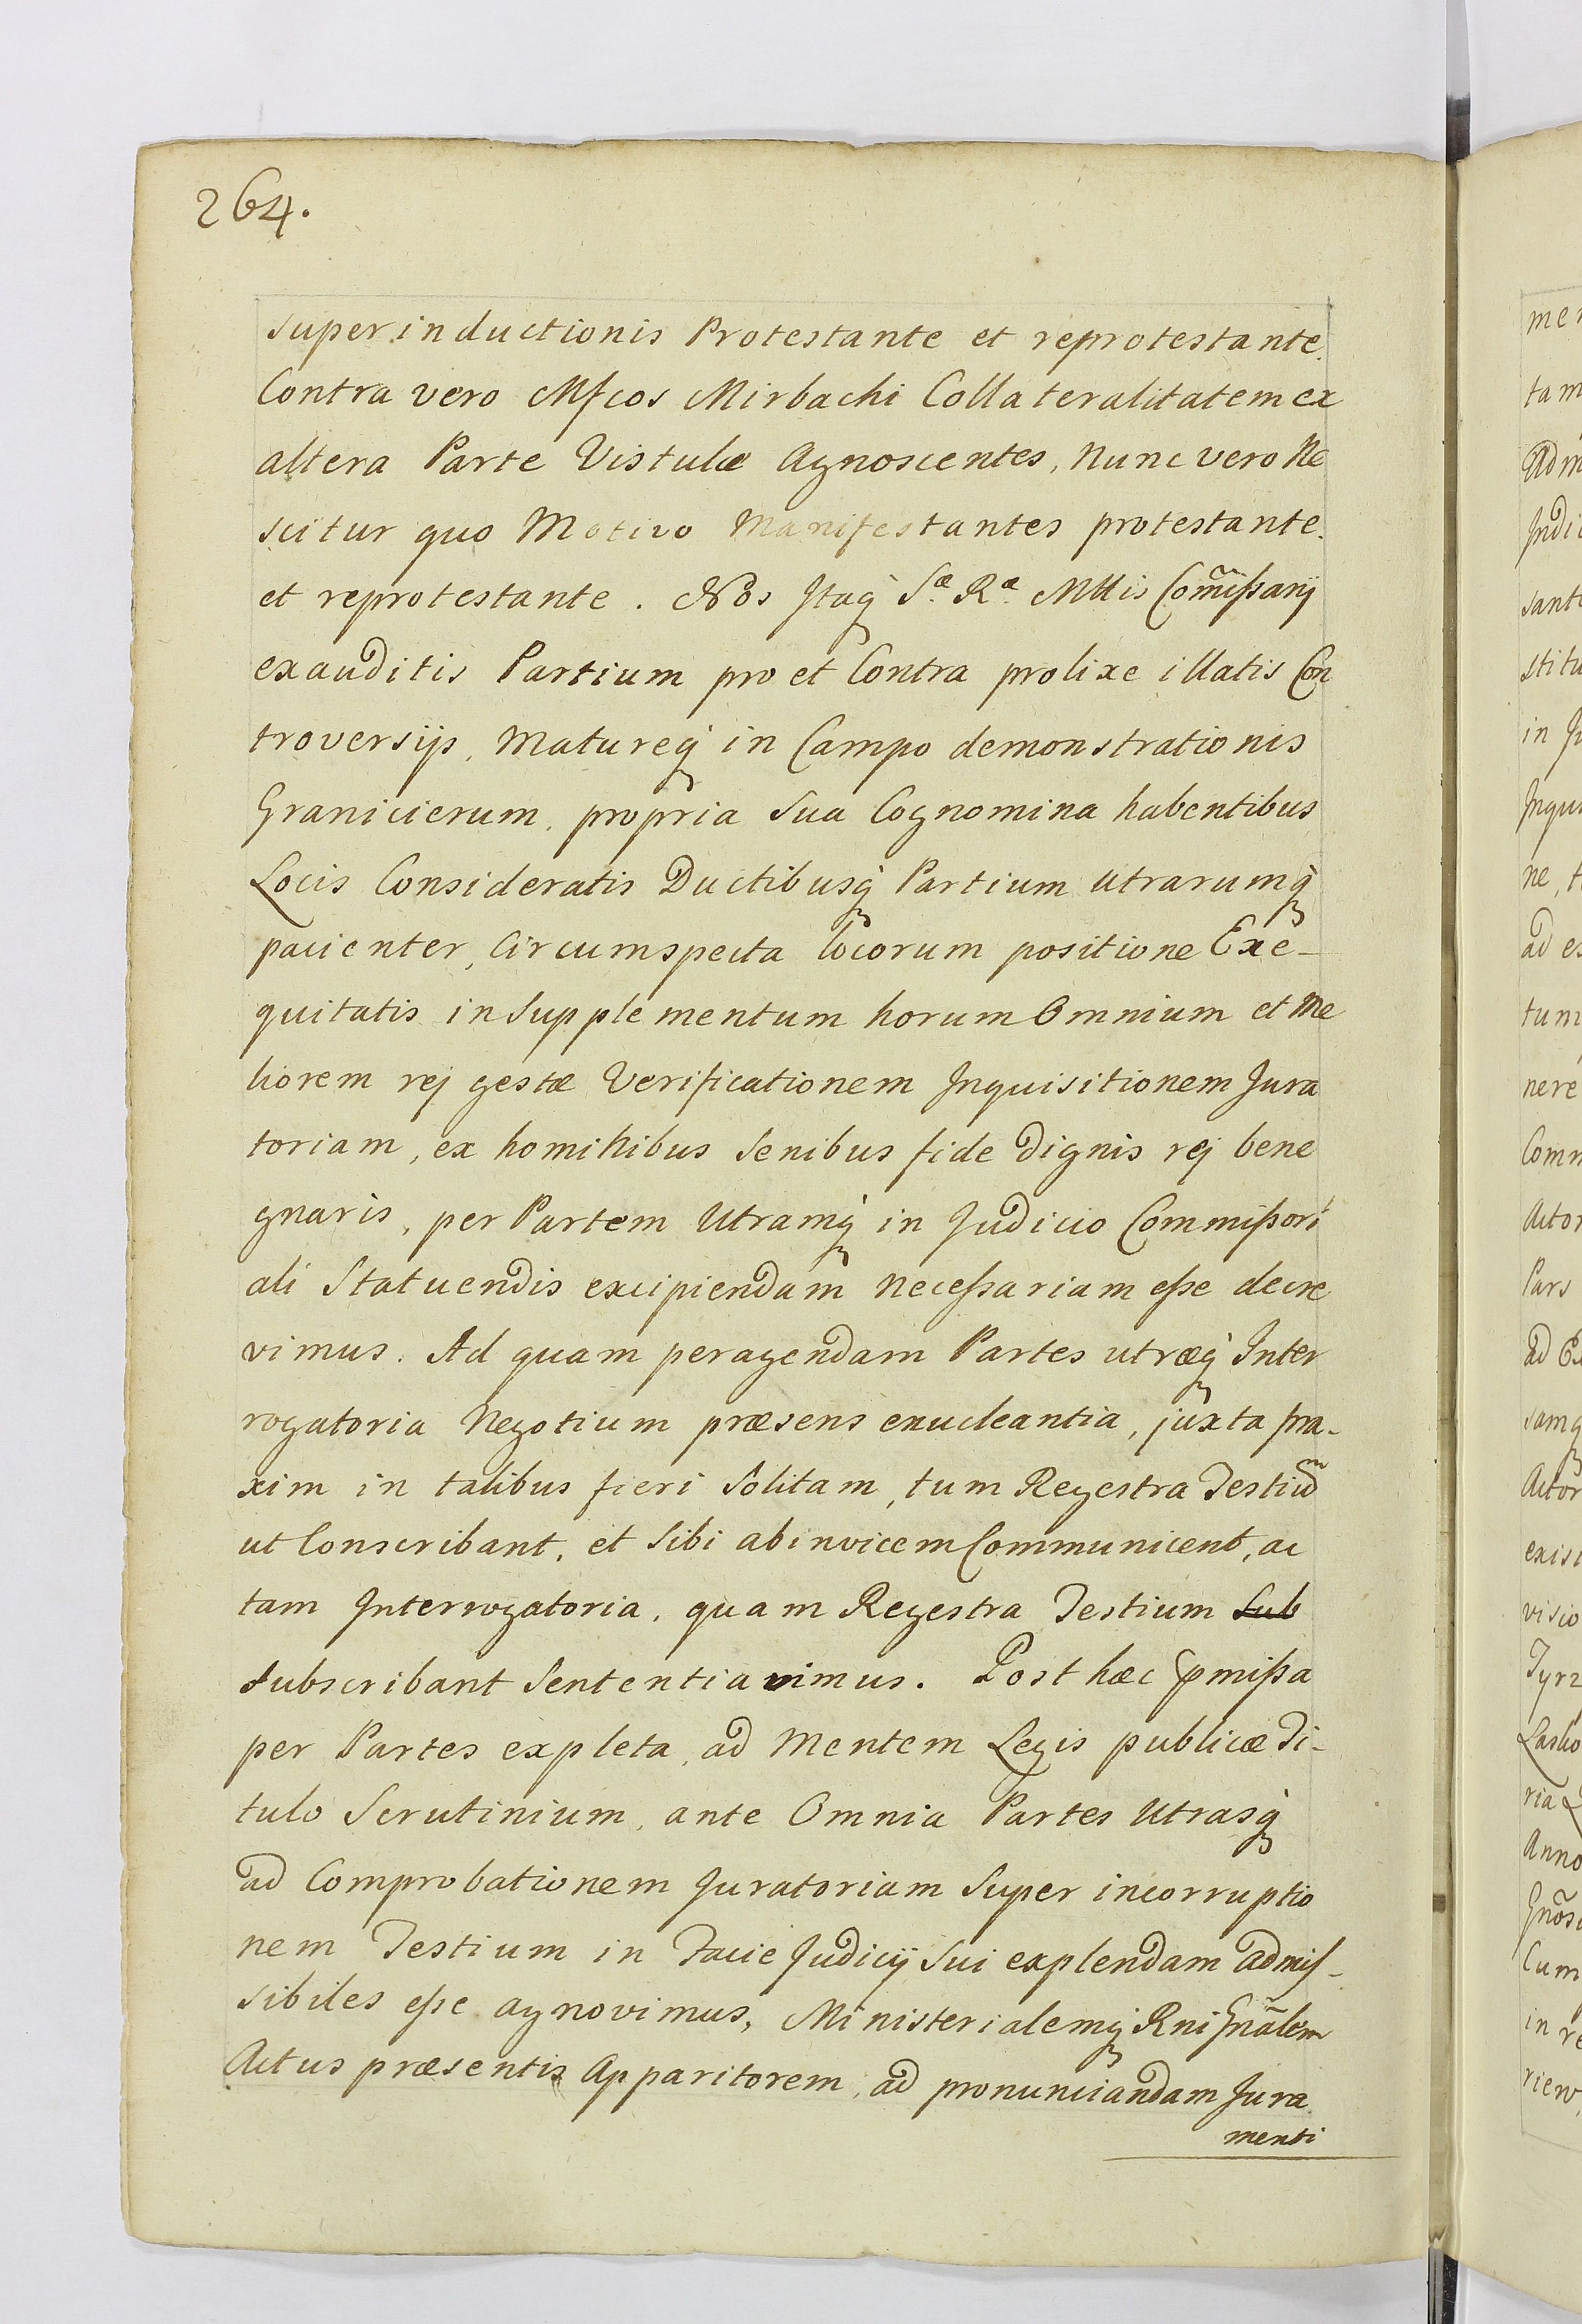 264.
superinductionis Protestante et reprotestante.
Contra vero Mfcos Mirbachi Collateralitatem ex
altera Parte Vistulæ Agnoscentes, Nunc vero Ne
scitur quo Motivo Manifestantes protestante.
et reprotestante. Nos Itaq́ Sæ Ræ Mttis Com̃ißarij
exauditis Partium pro et Contra prolixe illatis Con
troversijs, Matureq́ in Campo demonstrationis
Granicierum, propria sua Cognomina habentibus
Locis Consideratis Ductibusq́ Partium Utrarumq́
pacienter, Circumspecta locorum positione Exe-
quitatis in Supplementum horum Omnium et Me
liorem rej gestæ Verificationem Inquisitionem Jura
toriam, ex hominibus Senibus fide dignis rej bene
gnaris, per Partem Utramq́ in Judicio Commißori
ali Statuendis excipiendam Neceßariam eße decre
vimus. Ad quam peragendam Partes utræq́ Inter
rogatoria Negotium præsens enucleantia, juxta pra-
xim in talibus fieri Solitam, tum Regestra Testium
ut Conscribant, et Sibi abinvicem Communicent, ac
tam Interrogatoria, quam Regestra Testium Sub
Subscribant Sententiavimus. Post hæc pmißa
per Partes expleta, ad Mentem Legis publicæ Ti-
tulo Scrutinium, ante Omnia Partes Utrasq́
ad Comprobationem Juratoriam Super incorruptio
nem Testium in Facie Judicij Sui explendam admis-
sibiles eße agnovimus, Ministerialemq́ Rni Gnãlem
Actus præsentis Apparitorem, ad pronunciandam Jura
menti
me
tam
Adm
Indi
sant
stitu
in Ju
Inqui
ne, t
ad es
tum
nere
Comm
Actor
Pars
samq́
Actor
exisi
visio
Tyrz
Lasko
ria
Anno
Cum
in re
riew,